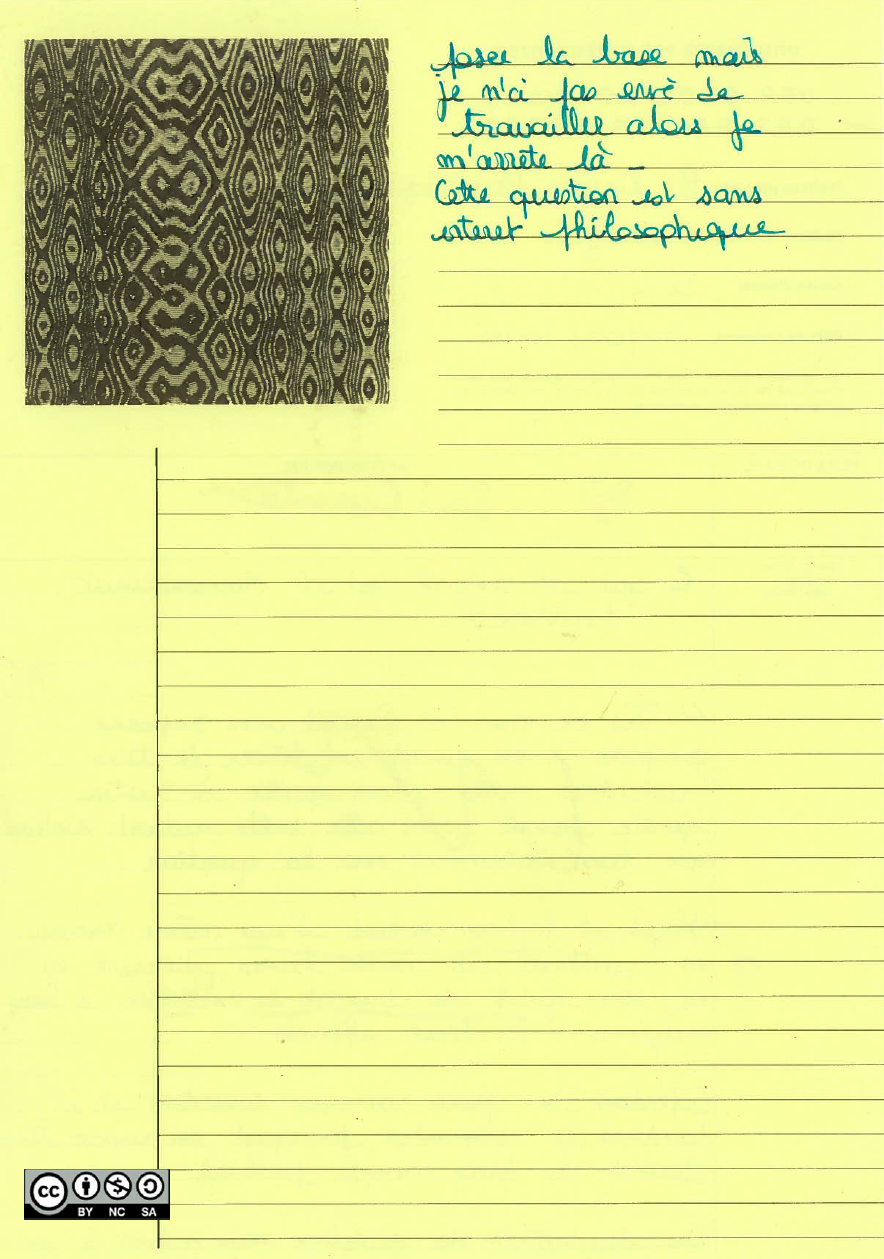 poser la base mais
je n'ai pas envie de
travailler alors je
m'arrête là -
Cette question est sans
interet philosophique
cc
BY NC SA